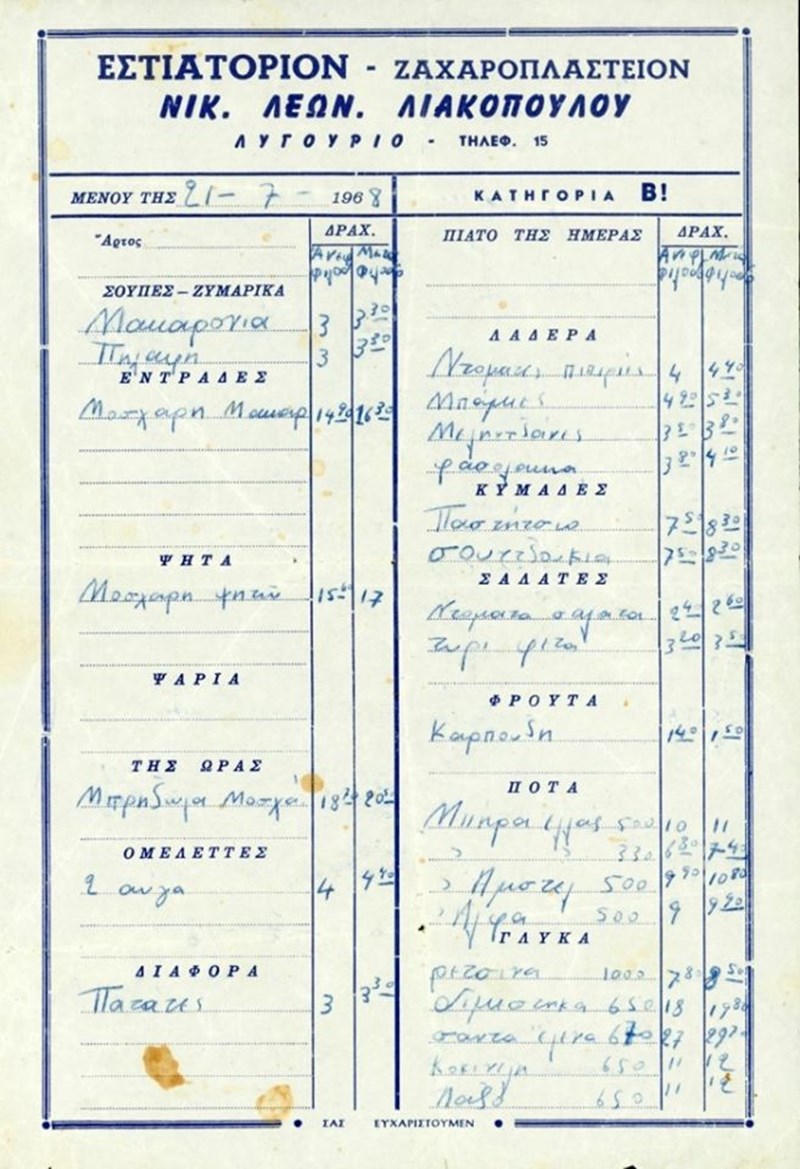 ΕΣΤΙΑΤΟΡΙΟΝ - ΖΑΧΑΡΟΠΛΑΣΤΕΙΟΝ
ΝΙΚ. ΛΕΩΝ. ΛΙΑΚΟΠΟΥΛΟΥ
ΛΥΓΟΥΡΙΟ - ΤΗΛΕΦ. 15
ΜΕΝΟΥ ΤΗΣ 21-7-1968
ΔΡΑΧ.
Ἄρτος
ΣΟΥΠΕΣ – ΖΥΜΑΡΙΚΑ
Μακαρονια 3 3 30
Πηλαφη 3 3 30
ΕΝΤΡΑΔΕΣ
Μοσχαρη Μακαρ 14 90 16 30
ΨΗΤΑ
Μοσχαρη ψητον 15 60 17
ΨΑΡΙΑ
ΤΗΣ ΩΡΑΣ
Μπρηζωλα Μοσχα.
ΟΜΕΛΕΤΤΕΣ
2 αυγα 4 4 40
ΔΙΑΦΟΡΑ
Πατατες 3 3 30
ΚΑΤΗΓΟΡΙΑ Β!
ΠΙΑΤΟ ΤΗΣ ΗΜΕΡΑΣ
ΔΡΑΧ.
ΛΑΔΕΡΑ
Ντοματες πιπεριες 4 4 40
Μπαμιες 4 90 5 30
Μεληντζανες
φασολακια
ΚΥΜΑΔΕΣ
Παστητσιο 7 50 8 30
σουτζουκια 7 50 8 30
ΣΑΛΑΤΕΣ
Ντοματα σαλατα 2 40 2 60
τυρι φετα 3 20 3 50
ΦΡΟΥΤΑ
Καρπουζη 1 40 1 50
ΠΟΤΑ
Μπηρα έλλας 500 10 11
» » 330 6 80 7 40
» Αμστελ 500 9 90 10 80
» Αλφα 500 9 9 90
ΓΛΥΚΑ
ρετσινα 1000 7 80 8 50
Διμεστηκα 650 18 19 80
σαντα έλενα 670 27 29 70
Κοκινελη 650 11 12
650 11 12
ΣΑΣ ΕΥΧΑΡΙΣΤΟΥΜΕΝ